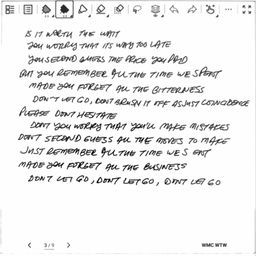 IS IT WORTH THE WAIT
YOU WORRY THAT ITS WAY TOO LATE
YOU SECOND GUESS THE PRICE YOU PAID
BUT YOU REMEMBER ALL THE TIME WE SPENT
MADE YOU FORGET ALL THE BITTERNESS
DON'T LET GO, DON'T BRUSH IT OFF AS JUST COINCIDENCE
PLEASE DON'T HESITATE
DON'T YOU WORRY THAT YOU'LL MAKE MISTAKES
DON'T SECOND GUESS ALL THE MOVES TO MAKE
JUST REMEMBER ALL THE TIME WE SPENT
MADE YOU FORGET ALL THE BUSINESS
DON'T LET GO, DON'T LET GO, DON'T LET GO
3/9
WMC WTW